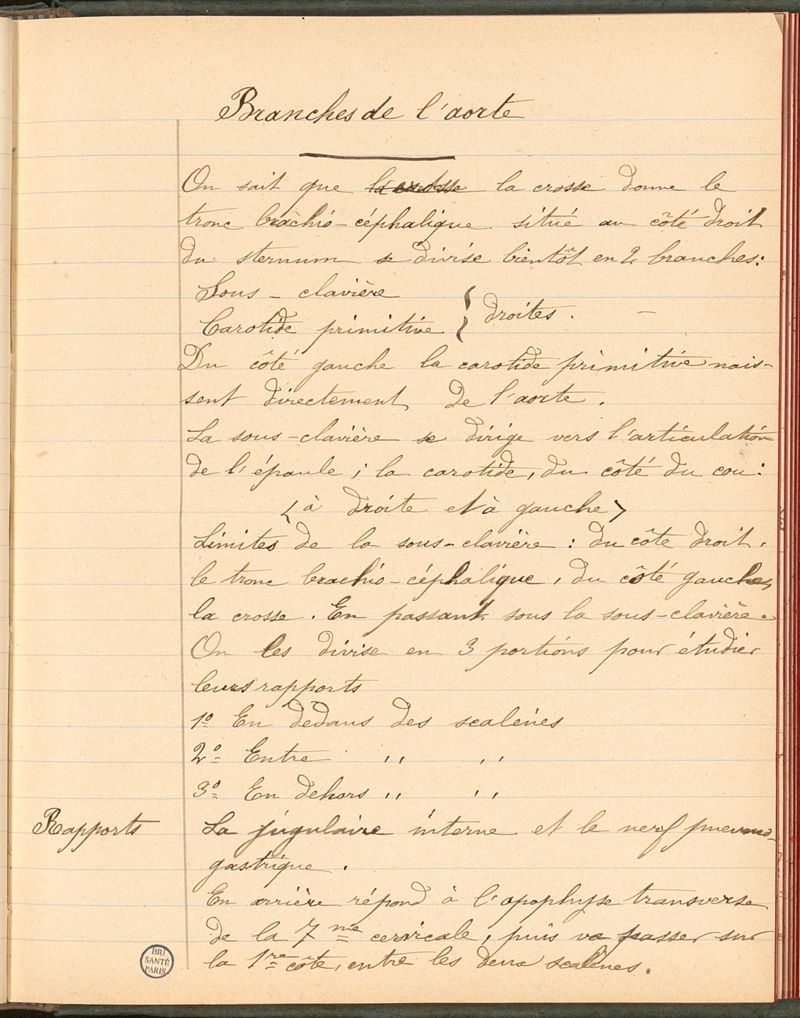 Branches de l'aorte
On sait que la crosse donne le
tronc brachio-céphalique situé au côté droit
du sternum se divise bientôt en 2 branches:
Sous-clavière
Carotide primitive } droites.
Du côté gauche la carotide primitive nais-
sent directement de l'aorte.
La sous-clavière se dirige vers l'articulation
de l'épaule; la carotide, du côté du cou:
(à droite et à gauche)
Limites de la sous-clavière: du côte droit,
le tronc brachio-céphalique, du côté gauche,
la crosse. En passant sous la sous-clavière.
On les divise en 3 portions pour étudier
leurs rapports
1º En dedans des scalènes
2º Entre " "
3º En dehors " "
Rapports La jugulaire interne et le nerf pneumo-
gastrique.
En arrière répond à l'apophyse transverse
de la 7me cervicale, puis va passer sur
la 1re côte, entre les deux scalènes.
BIU
SANTÉ
PARIS